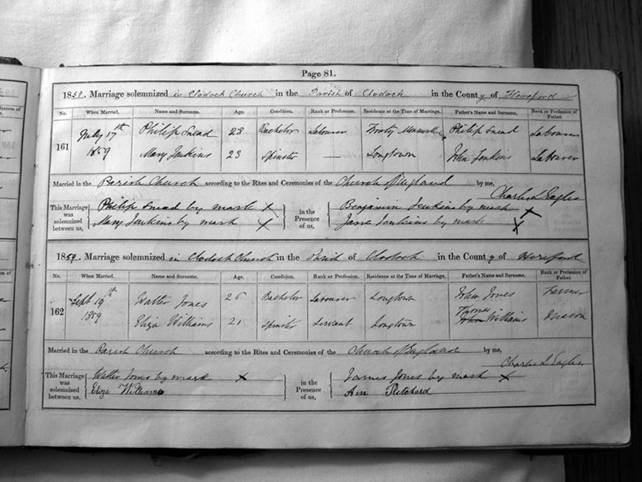 Page 81.
1859. Marriage solemnized in Clodock Church in the Parish of Clodock in the County of Hereford
No. When Married. Name and Surname. Age. Condition. Rank or Profession. Residence at the Time of Marriage. Father's Name and Surname. Rank or Profession of Father.
161 July 17th Philip 28 Bachelor Labourer Philip Labourer
1859 Mary Jenkins 23 Spinster — Longtown John Jenkins Labourer
Married in the Parish Church according to the Rites and Ceremonies of the Church of England by me, Charles L Eagles
This Marriage was solemnized between us, Philip by mark X in the Presence of us, Benjamin Jenkins by mark X
Mary Jenkins by mark X Jane Jenkins by mark X
1859. Marriage solemnized in Clodock Church in the Parish of Clodock in the County of Hereford
No. When Married. Name and Surname. Age. Condition. Rank or Profession. Residence at the Time of Marriage. Father's Name and Surname. Rank or Profession of Father.
162 Sept 19th Walter Jones 26 Bachelor Labourer Longtown John Jones Farmer
1859 Eliza Williams 21 Spinster Servant Longtown James John Williams Mason
Married in the Parish Church according to the Rites and Ceremonies of the Church of England by me, Charles L Eagles
This Marriage was solemnized between us, Walter Jones by mark X in the Presence of us, James Jones by mark X
Eliza Williams Ann Pritchard